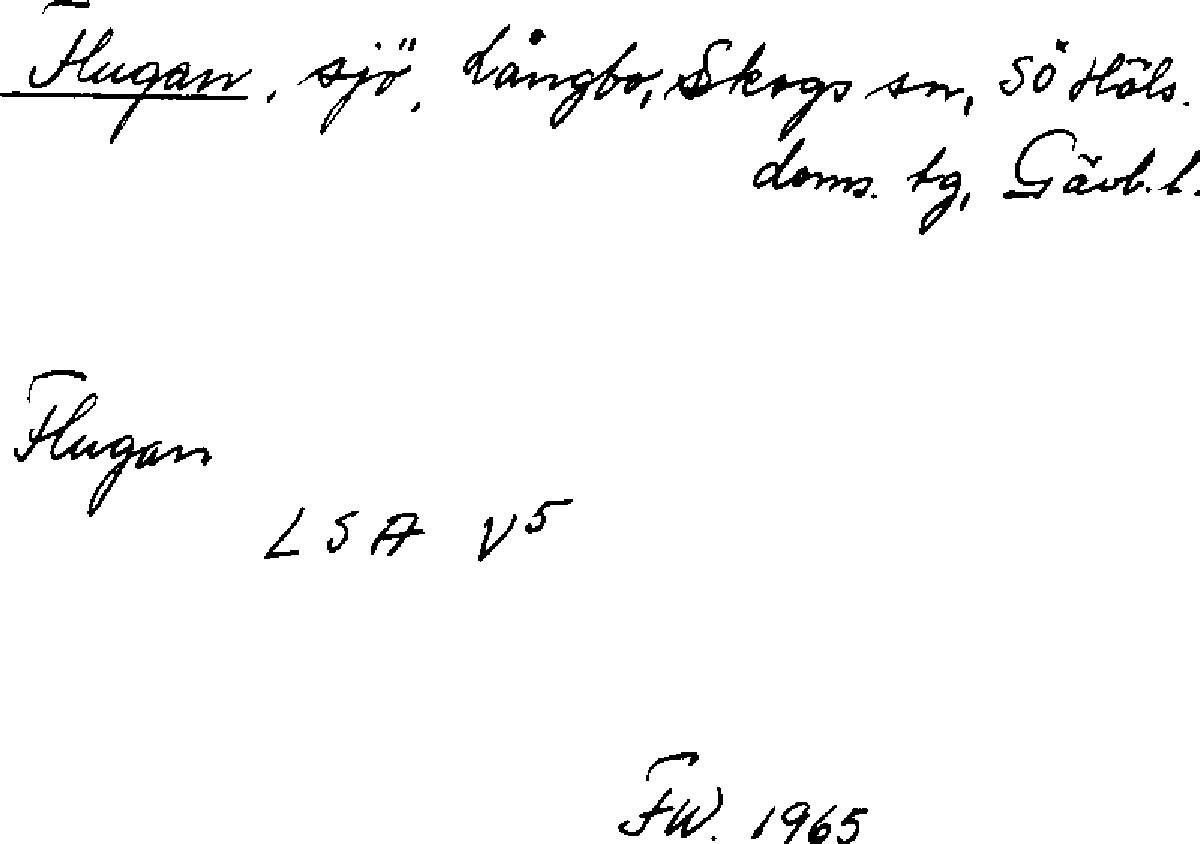 Flugan, sjö, Långbo, Skogs sn, SÖ Häls.
doms. tg, Gävb. l.
Flugan
LSA V5
FW. 1965